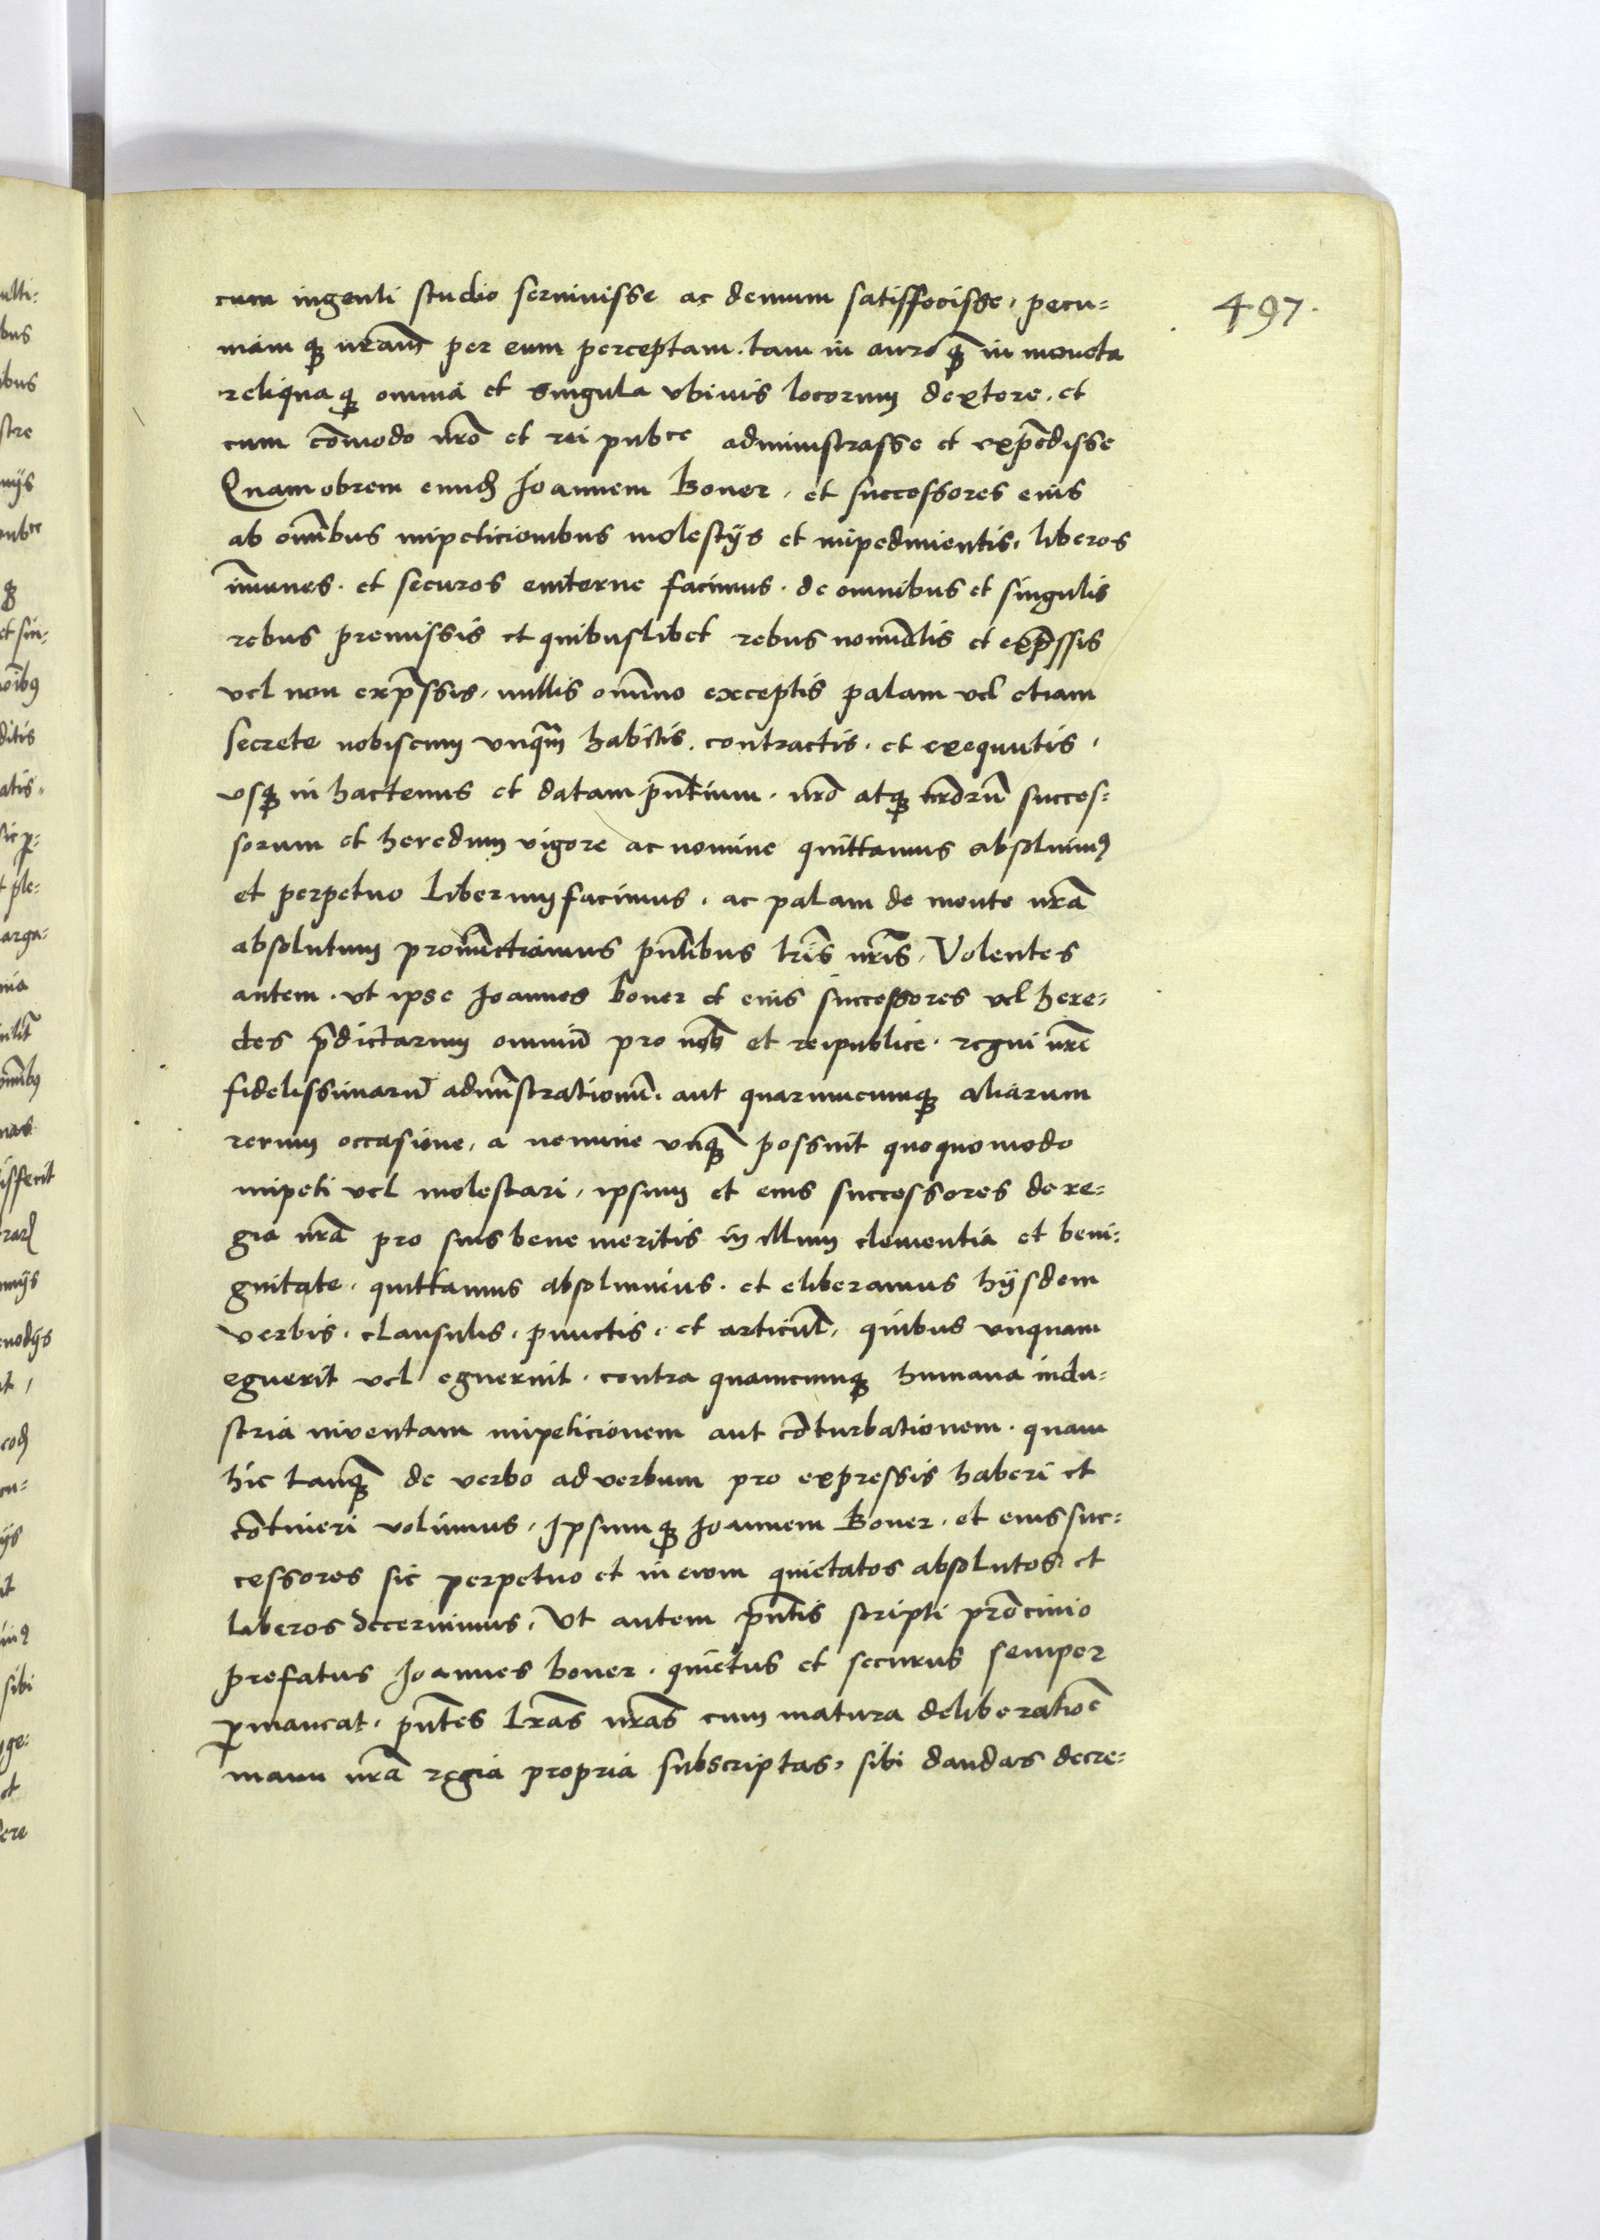 497.
cum ingenti studio seruiuisse ac demum satisffecisse, pecu=
niam q̃ nr̃am per eum perceptam. tam in auro q̃ in moneta
reliqua q̃ omnia et singula vbiuis locorum dextere. et
cum cõmodo nr̃o et rei pubce administrasse et exp̃edisse
Quamobrem eund̃ Joannem Boner, et successores eius
ab om̃ibus impeticionibus molestijs et impedimentis, liberos
im̃unes. et securos facimus. de omnibus et singulis
rebus premissis et quibuslibet rebus nomĩatis et exp̃ssis
vel non exp̃ssis, nullis omnino exceptis palam vel etiam
secrete nobiscum vnq̃m habitis. contractis. et exequutis.
vsq̃ in hactenus et datam pñtium. nr̃o atq̃ nr̃orũ succes=
sorum et heredum vigore ac nomine quittamus absoluim9
et perpetuo liberum facimus. ac palam de mente nr̃a
absolutum pronunctiamus pñtibus lr̃is nr̃is, Volentes
autem. vt ipse Joannes boner et eius successores vel here=
des p̃dictarum omniũ pro nob̃ et reipublice. regni nr̃i
fidelissimarũ admĩstrationũ. aut quarumcumq̃ aliarum
rerum occasione, a nemine vnq̃ possint quoquomodo
impeti vel molestari, ipsum et eius successores de re=
gia nr̃a pro suis bene meritis in illum clementia et beni=
gnitate. quittamus absoluimus. et eliberamus hijsdem
verbis. clausulis. punctis. et articul̃, quibus vnquam
eguerit vel eguerint. contra quamcumq̃ humana indu=
stria inventam impeticionem aut cõturbationem. quam
hic tanq̃ de verbo ad verbum pro expressis haberi et
cõtineri volumus, Ipsumq̃ Joannem Boner. et eius suc=
cessores sic perpetuo et in ewm quietatos absolutos et
liberos decernimus, Vt autem pñtis scripti pr̃ocinio
prefatus Joannes boner. quietus et securus semper
p̱maneat. pñtes lr̃as nr̃as cum matura deliberatiõe
manu nr̃a regia propria subscriptas, sibi dandas decre=